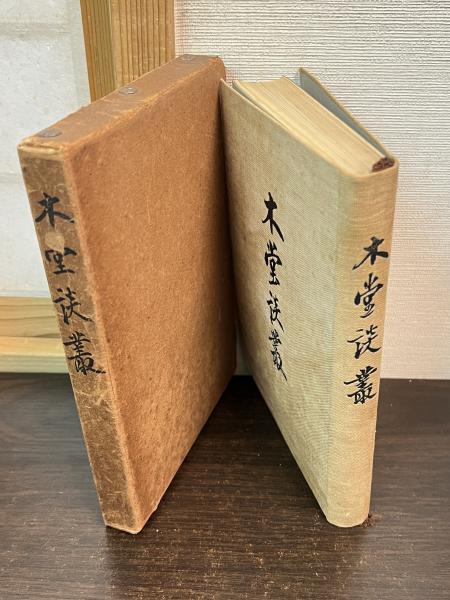 木堂談叢
木堂談叢
木堂談叢